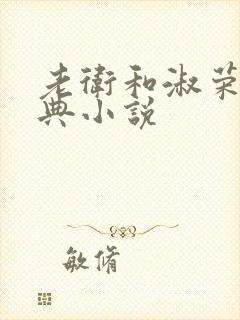 老衛和淑荣
典小説
敏脩